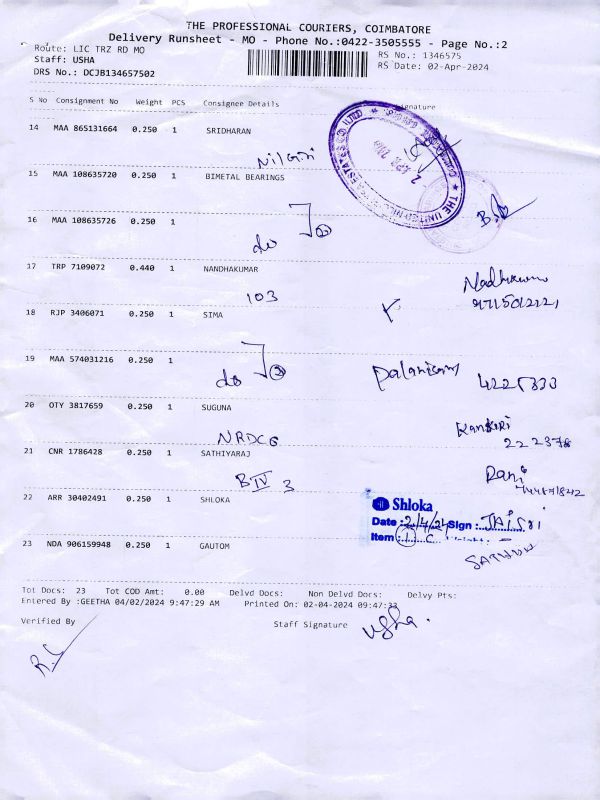 THE PROFESSIONAL COURIERS, COIMBATORE
Delivery Runsheet - MO - Phone No.:0422-3505555 - Page No.:2
Route: LIC TRZ RD MO
RS No.: 1346575
Staff: USHA
RS Date: 02-Apr-2024
DRS No.: DCJB134657502
S No Consignment No Weight PCS Consignee Details Signature
14 MAA 865131664 0.250 1 SRIDHARAN
Nilgiri
15 MAA 108635720 0.250 1 BIMETAL BEARINGS
16 MAA 108635726 0.250 1
do
17 TRP 7109072 0.440 1 NANDHAKUMAR
103
18 RJP 3406071 0.250 1 SIMA
19 MAA 574031216 0.250 1
do
20 OTY 3817659 0.250 1 SUGUNA
NRDCG
222378
21 CNR 1786428 0.250 1 SATHIYARAJ
B IV 3
Rani
22 ARR 30402491 0.250 1 SHLOKA
Shloka
Date : 2/4/24 Sign : JAISRI
Item : 1 C
23 NDA 906159948 0.250 1 GAUTOM
Tot Docs: 23 Tot COD Amt: 0.00 Delvd Docs: Non Delvd Docs: Delvy Pts:
Entered By :GEETHA 04/02/2024 9:47:29 AM Printed On: 02-04-2024 09:47:33
Verified By
Staff Signature
Usha.